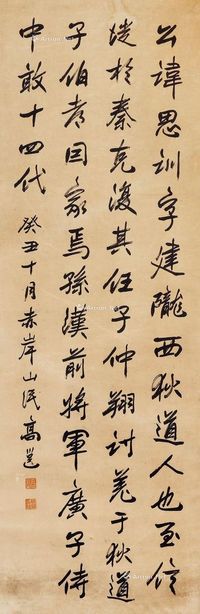 公諱思訓字建隴西狄道人也至信
徙於秦克復其任子仲翔討羌于狄道
子伯考因家焉孫漢前將軍廣子侍
中敢十四代
癸丑十月赤岸山民高邕